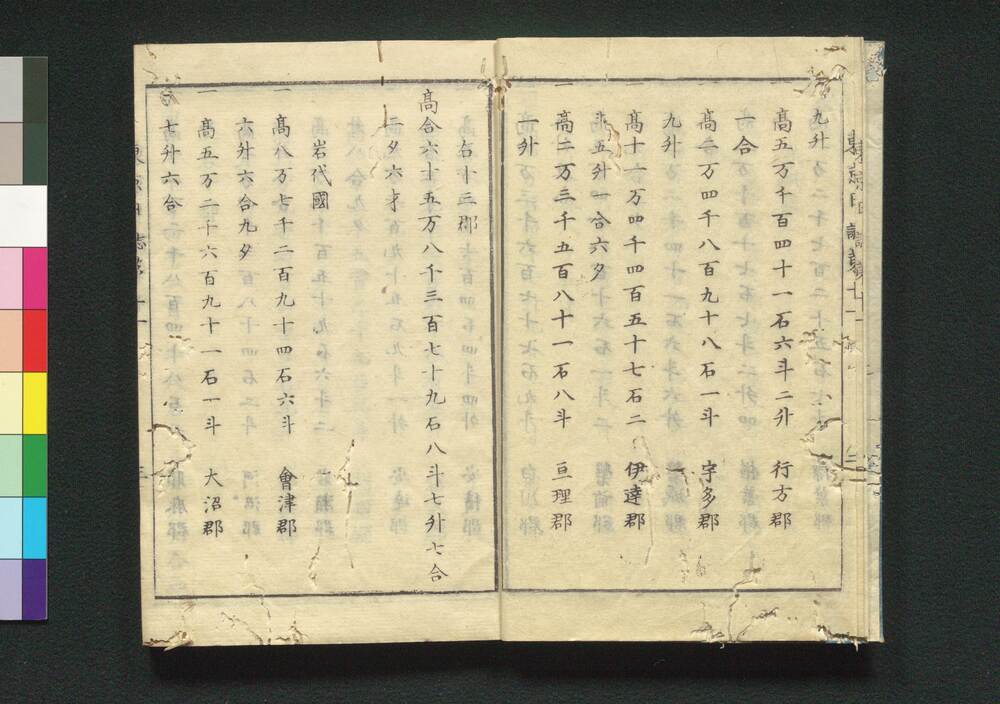 九升
一 高五万千百四十一石六斗二升 行方郡
一合
一 高二万四千八百九十八石一斗 宇多郡
九升
一 高十六万四千四百五十七石二 伊達郡
斗五升一合六夕
一 高二万三千五百八十一石八斗 亘理郡
一升
右十三郡
高合六十五万八千三百七十九石八斗七升七合
二夕六才
岩代國
一 高八万七千二百九十四石六斗 會津郡
六升六合九夕
一 高五万二千六百九十一石一斗 大沼郡
七升六合